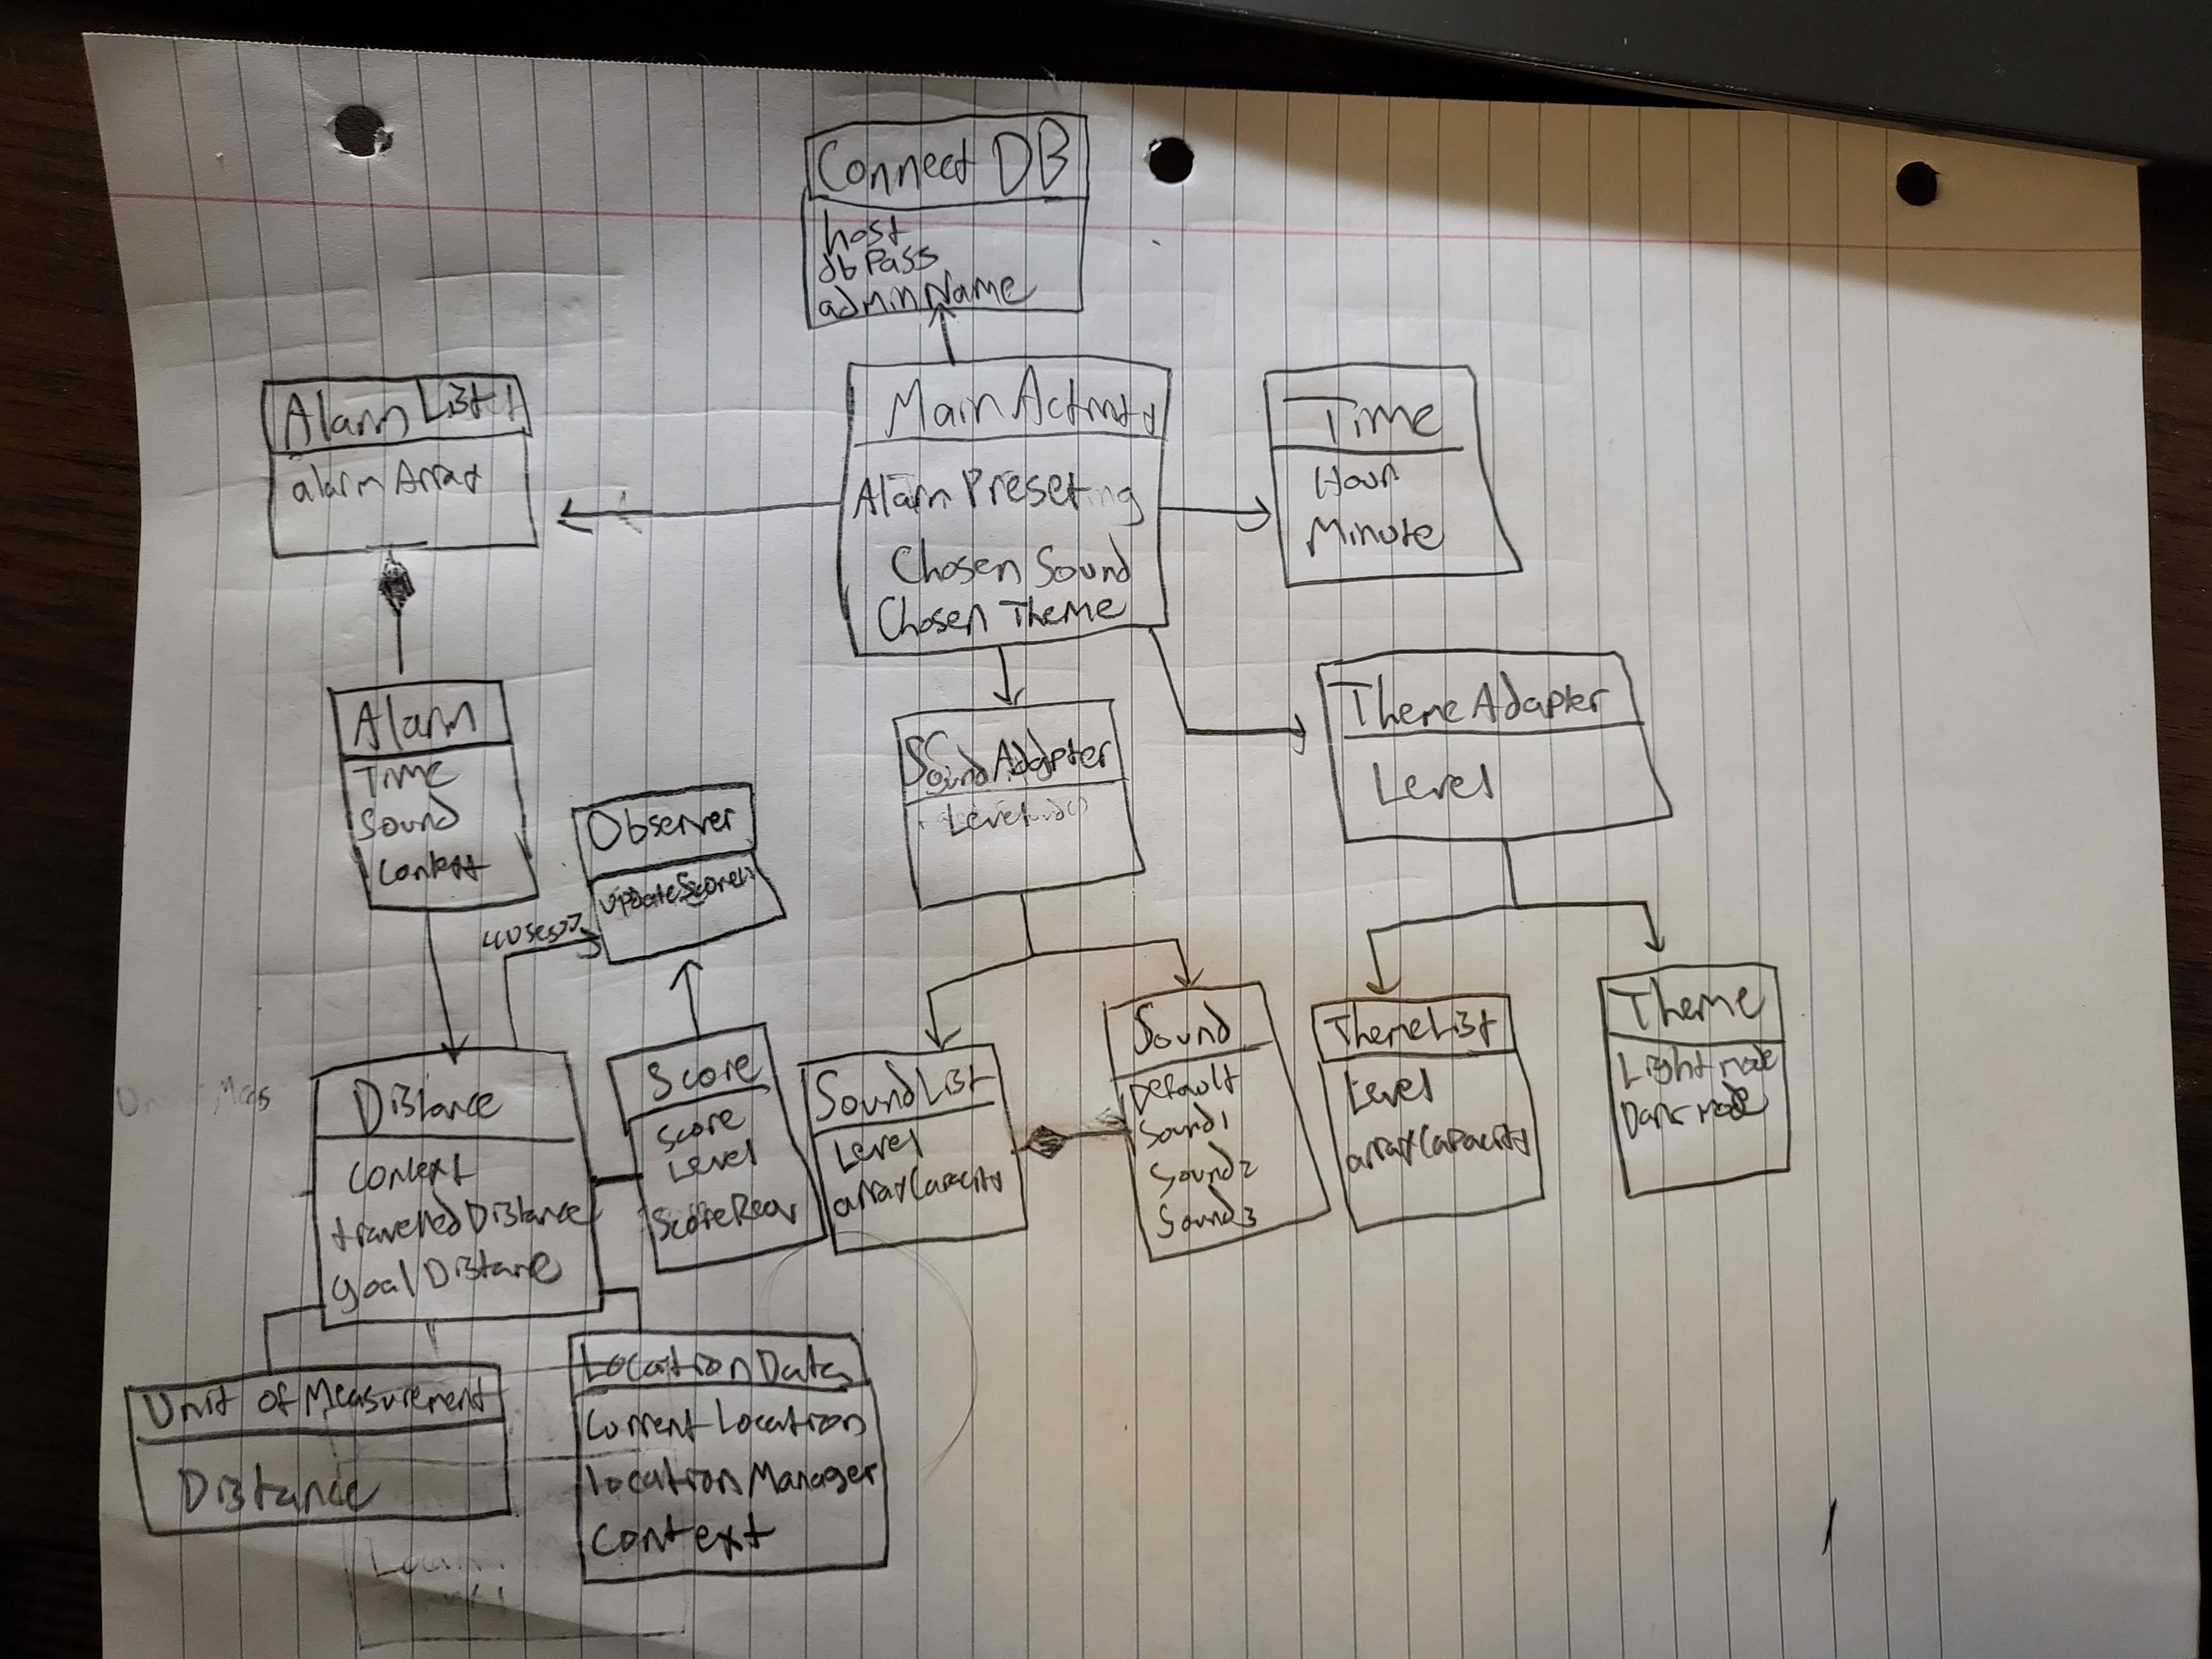 Connect DB
host
dbPass
adminName
Alarm List
alarmArray
MainActivity
Alarm Preset
Chosen Sound
Chosen Theme
Time
Hour
Minute
Alarm
Time
Sound
Context
Observer
updateScore()
<<uses>>
SoundAdapter
Level
ThemeAdapter
Level
Distance
Context
travelledDistance
goalDistance
Score
Score
Level
SoundList
Level
arrayCapacity
Sound
Default
Sound1
Sound2
Sound3
ThemeList
Level
arrayCapacity
Theme
Light mode
Dark mode
Unit of Measurement
Distance
LocationData
Current Location
LocationManager
Context